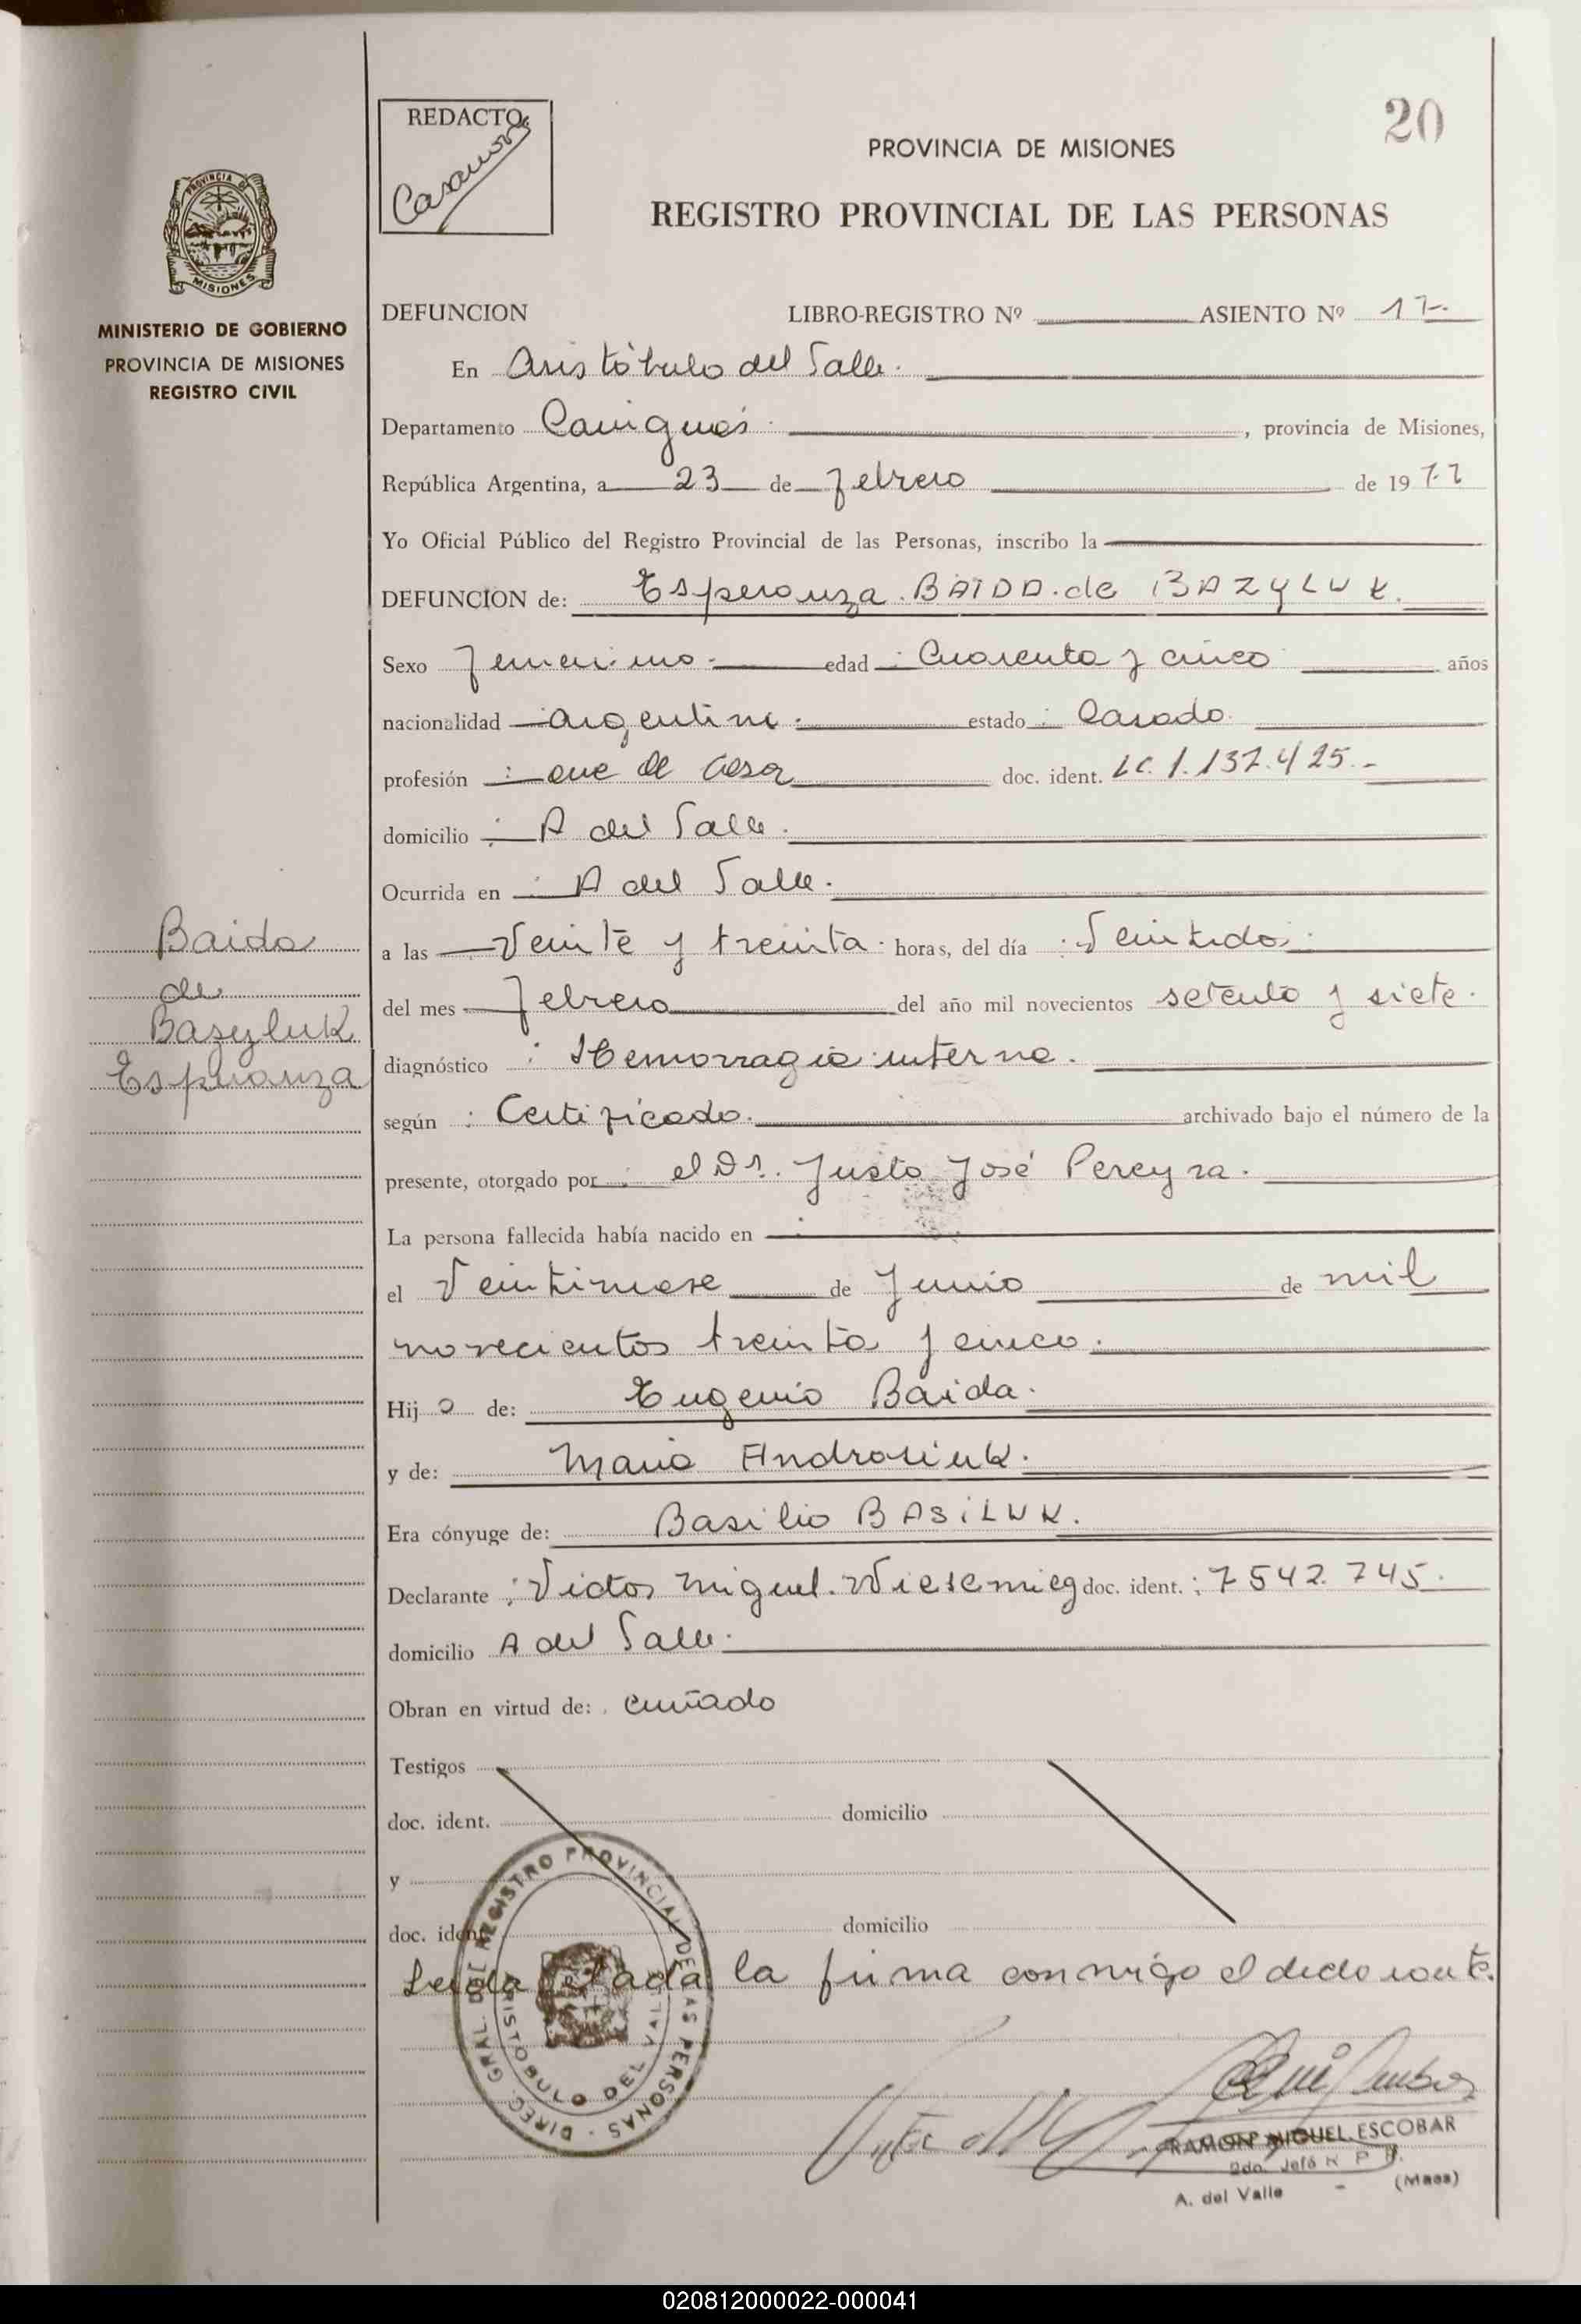 20
REDACTO
Casanova
PROVINCIA DE MISIONES
REGISTRO PROVINCIAL DE LAS PERSONAS
PROVINCIA DE
MISIONES
MINISTERIO DE GOBIERNO
PROVINCIA DE MISIONES
REGISTRO CIVIL
DEFUNCION LIBRO-REGISTRO Nº ASIENTO Nº 17.-
En Aristóbulo del Valle.
Departamento Cainguás, provincia de Misiones,
República Argentina, a 23 de febrero de 1977
Yo Oficial Público del Registro Provincial de las Personas, inscribo la
DEFUNCION de: Esperanza BAIDA de BAZYLUK.
Sexo femenino.- edad: Cuarenta y cinco años
nacionalidad argentina. estado: Casada.
profesión: ama de casa doc. ident. LC. 1.137.425.-
domicilio: A del Valle.
Ocurrida en: A del Valle.
a las Veinte y treinta. horas, del día: Veintidos.
del mes febrero del año mil novecientos setenta y siete.
diagnóstico: Hemorragia interna.
según: Certificado. archivado bajo el número de la
presente, otorgado por: el Dr. Justo José Pereyra.
La persona fallecida había nacido en:
el Veintinueve de Junio de mil
novecientos treinta y cinco.
Hija de: Eugenio Baida.
y de: Maria Androsiuk.
Era cónyuge de: Basilio BASiLUK.
Declarante: Victor Miguel Wiesemieg doc. ident.: 7542.745.
domicilio A del Valle.
Obran en virtud de: cuñado
Baida
de
Bazyluk
Esperanza
Testigos
doc. ident. domicilio
y
doc. ident. domicilio
Leida el acta la firma conmigo el declarante.
DIREC. GRAL. DEL REGISTRO PROVINCIAL DE LAS PERSONAS
ARISTOBULO DEL VALLE
RAMON MIGUEL ESCOBAR
2do. Jefe R P P.
A. del Valle - (Mnes)
020812000022-000041